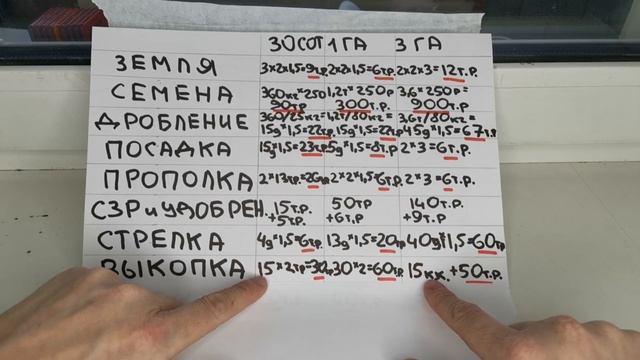 30 СОТ 1 ГА 3 ГА
ЗЕМЛЯ 3×2×1,5=9т.р. 2×2×1,5=6т.р. 2×2×3=12т.р.
СЕМЕНА 360кг*250 1,2т*250р 3,6*250р=
90т.р 300т.р. 900т.р.
ДРОБЛЕНИЕ 360/25кг= 1,2т/80кг= 3,6т/80кг=
15д*1,5=22т.р. 15д*1,5=22т.р. 45д*1,5=67т.р
ПОСАДКА 15д*1,5=23т.р. 5д*1,5=8т.р. 2*3=6т.р.
ПРОПОЛКА 2*13т.р.=26т.р. 2×2*1,5=6т.р. 2*3=6т.р.
СЗР и УДОБРЕН. 15т.р. 50тр 140т.р.
+5т.р. +6т.р +9т.р
СТРЕЛКА 4д*1,5=6т.р. 13д*1,5=20т.р. 40д*1,5=60тр
ВЫКОПКА 15×2тр=30тр 30×2=60т.р. 15 к.х. +50т.р.